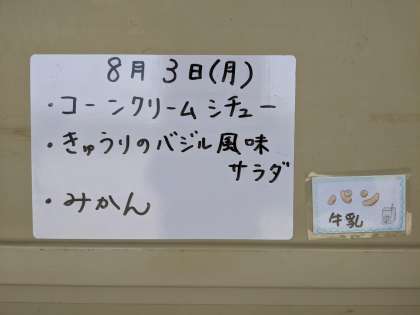 8月3日(月)
・コーンクリームシチュー
・きゅうりのバジル風味
サラダ
・みかん
パン
牛乳